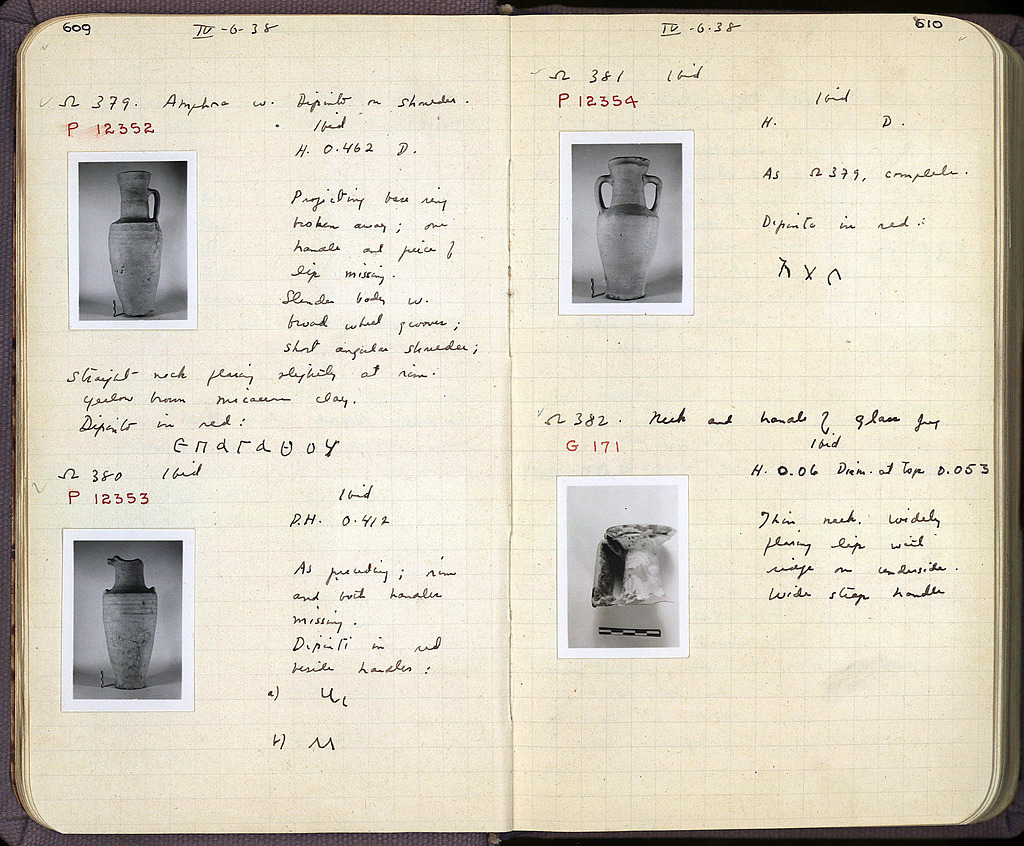 609
IV-6-38
Ω 379. Amphora w. Dipinto on shoulder.
P 12352
Ibid
H. 0.462 D.
Projecting base ring
broken away; one
handle and piece of
lip missing.
Slender body w.
broad wheel grooves;
short angular shoulder;
straight neck flaring slightly at rim.
yellow brown micaceous clay.
Dipinto in red:
Ω 380 Ibid
P 12353
Ibid
P.H. 0.412
As preceding; rim
and both handles
missing.
Dipinti in red
beside handles:
a)
b)
610
IV-6-38
Ω 381 Ibid
P 12354
Ibid
H. D.
As Ω 379, complete.
Dipinto in red:
Ω 382. Neck and handle of glass jug
G 171
Ibid
H. 0.06 Diam. at Top 0.053
Thin neck. Widely
flaring lip with
ridge on underside.
Wide strap handle